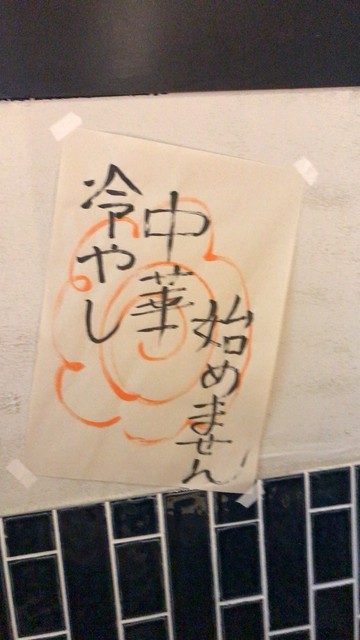 冷やし
中華
始めません